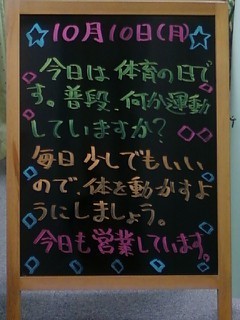 10月10日(月)
今日は体育の日で
す。普段、何か運動
していますか?
毎日少しでもいい
ので、体を動かすよ
うにしましょう。
今日も営業しています。